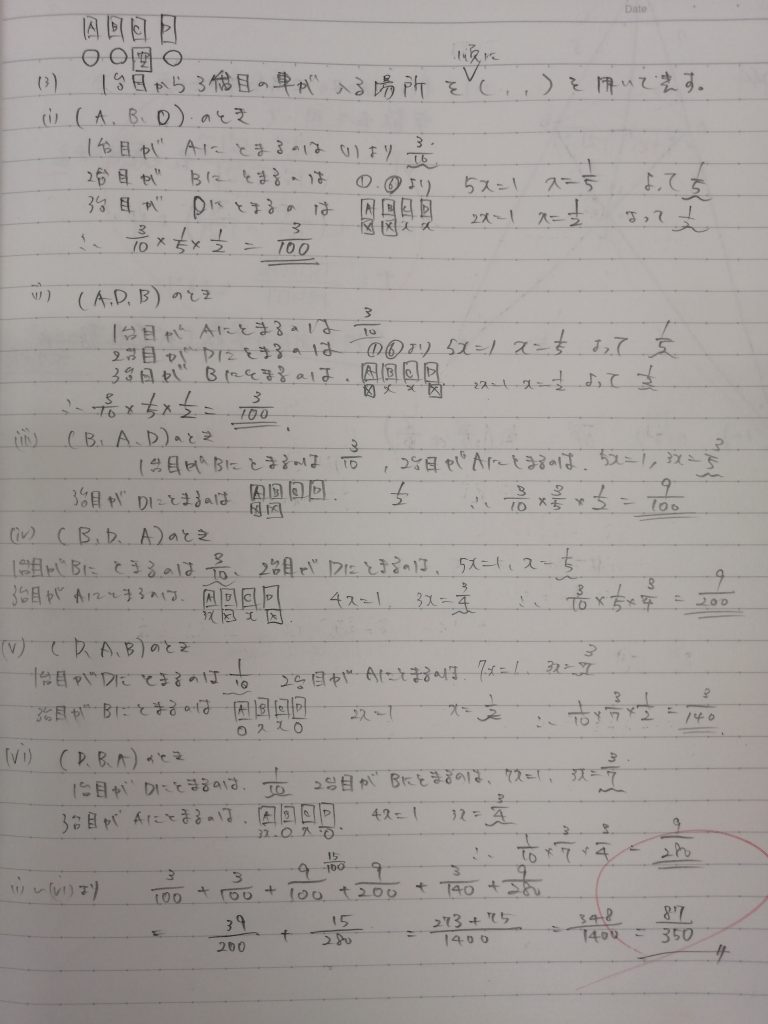 Date
A B C D
○ ○ 空 ○
(3) 1台目から3台目の車が 入る場所を順に( , , )を用いて表す。
(i) (A, B, D)のとき
1台目がAにとまるのは (1)より 3/10
2台目がBにとまるのは ①,⑥より 5x=1 x=1/5 よって 1/5
3台目がDにとまるのは A B C D x x x x 2x=1 x=1/2 よって 1/2
∴ 3/10 × 1/5 × 1/2 = 3/100
ii) (A, D, B)のとき
1台目がAにとまるのは 3/10
2台目がDにとまるのは ①⑥より 5x=1 x=1/5 よって 1/5
3台目がBにとまるのは、 A B C D x x x x 2x=1 x=1/2 よって 1/2
∴ 3/10 × 1/5 × 1/2 = 3/100
iii) (B, A, D)のとき
1台目がBにとまるのは 3/10 , 2台目がAにとまるのは、 5x=1, 3x=3/5
3台目がDにとまるのは A B C D x x 1/2 ∴ 3/10 × 3/5 × 1/2 = 9/100
(iv) (B, D, A)のとき
1台目がBにとまるのは 3/10、 2台目がDにとまるのは、 5x=1、x=1/5
3台目がAにとまるのは、 A B C D 3x x x x 4x=1 3x=3/4 ∴ 3/10 × 1/5 × 3/4 = 9/200
(v) (D, A, B)のとき
1台目がDにとまるのは 1/10 2台目がAにとまるのは、 7x=1、 3x=3/7
3台目がBにとまるのは A B C D 0 x x 0 2x=1 x=1/2 ∴ 1/10 × 3/7 × 1/2 = 3/140
(vi) (D, B, A)のとき
1台目がDにとまるのは、 1/10 2台目がBにとまるのは、 7x=1、 3x=3/7
3台目がAにとまるのは、 A B C D 3x 0 x 0 4x=1 3x=3/4
∴ 1/10 × 3/7 × 3/4 = 9/280
15/100
(i)~(vi)より 3/100 + 3/100 + 9/100 + 9/200 + 3/140 + 9/280
= 39/200 + 15/280 = 273+75/1400 = 348/1400 = 87/350